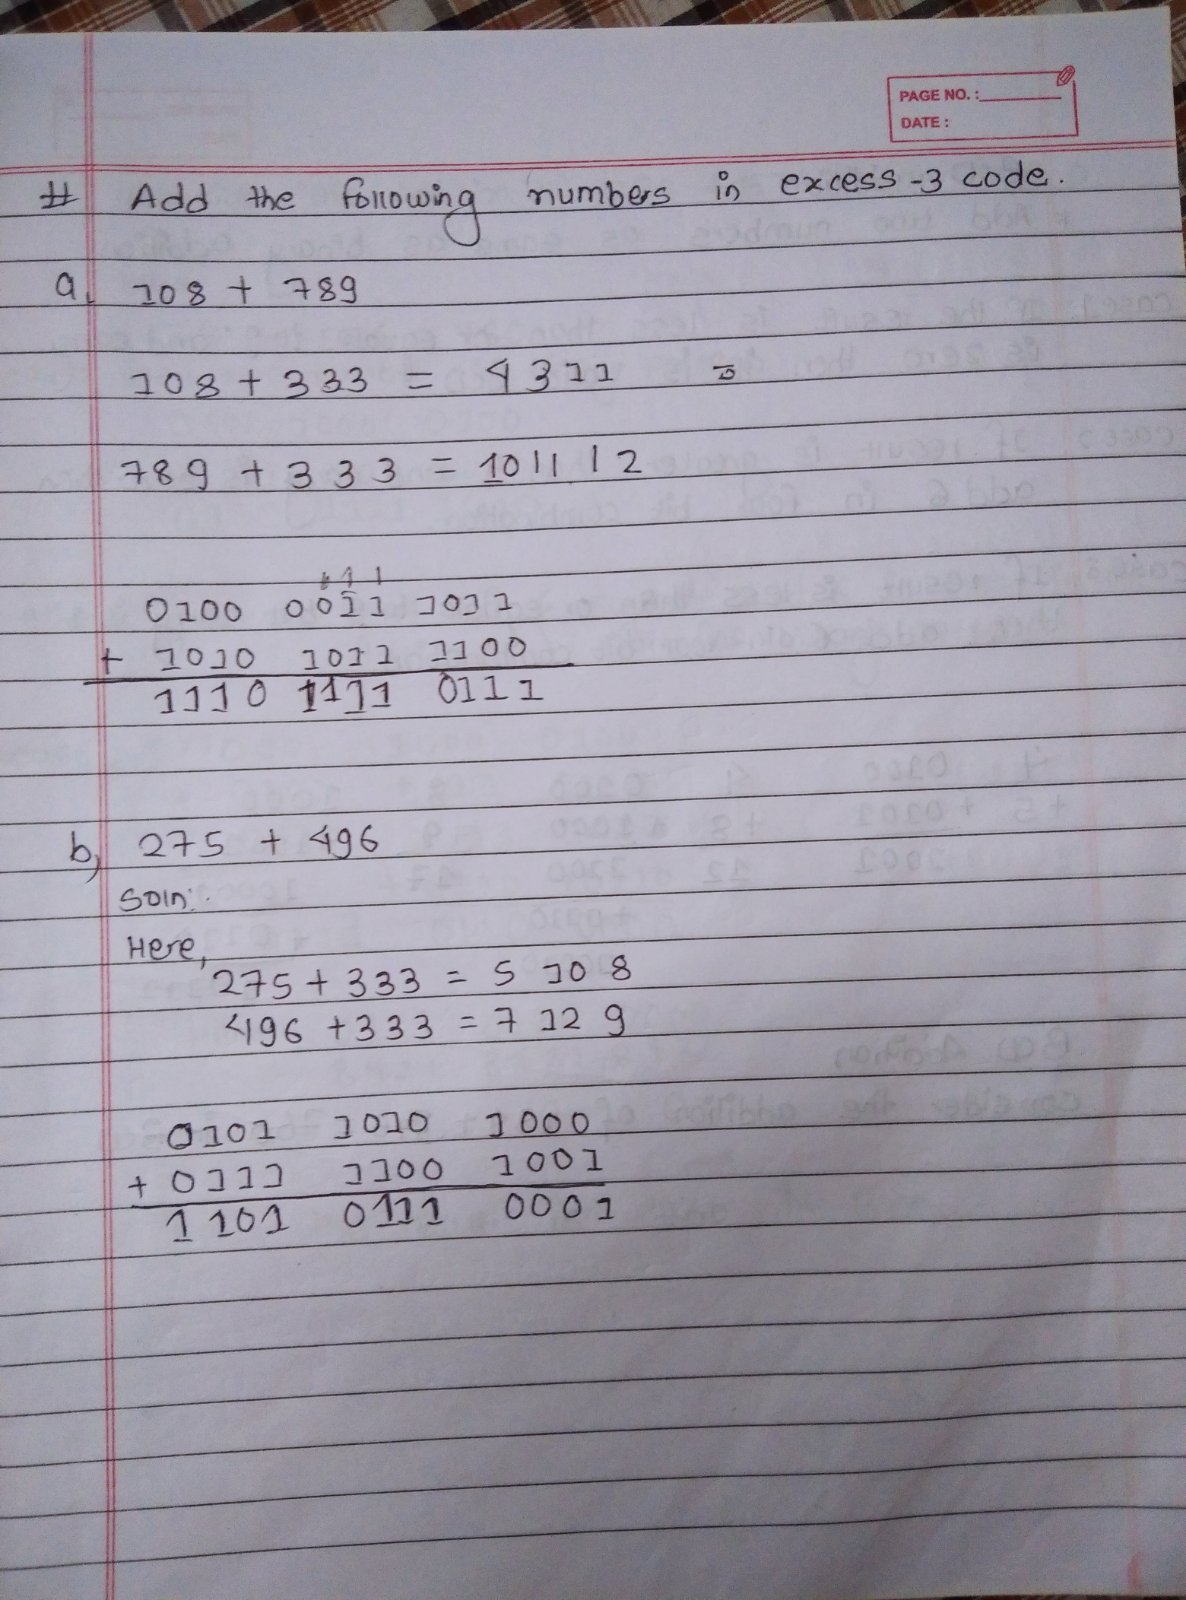 PAGE NO. :
DATE :
# Add the following numbers in excess-3 code.
a, 108 + 789
108 + 333 = 4311 =
789 + 333 = 1011 12
1 1 1
0100 0011 1011
+ 1010 1011 1100
1110 1111 0111
b, 275 + 496
Soln:
Here,
275 + 333 = 5 10 8
496 + 333 = 7 12 9
0101 1010 1000
+ 0111 1100 1001
1101 0111 0001